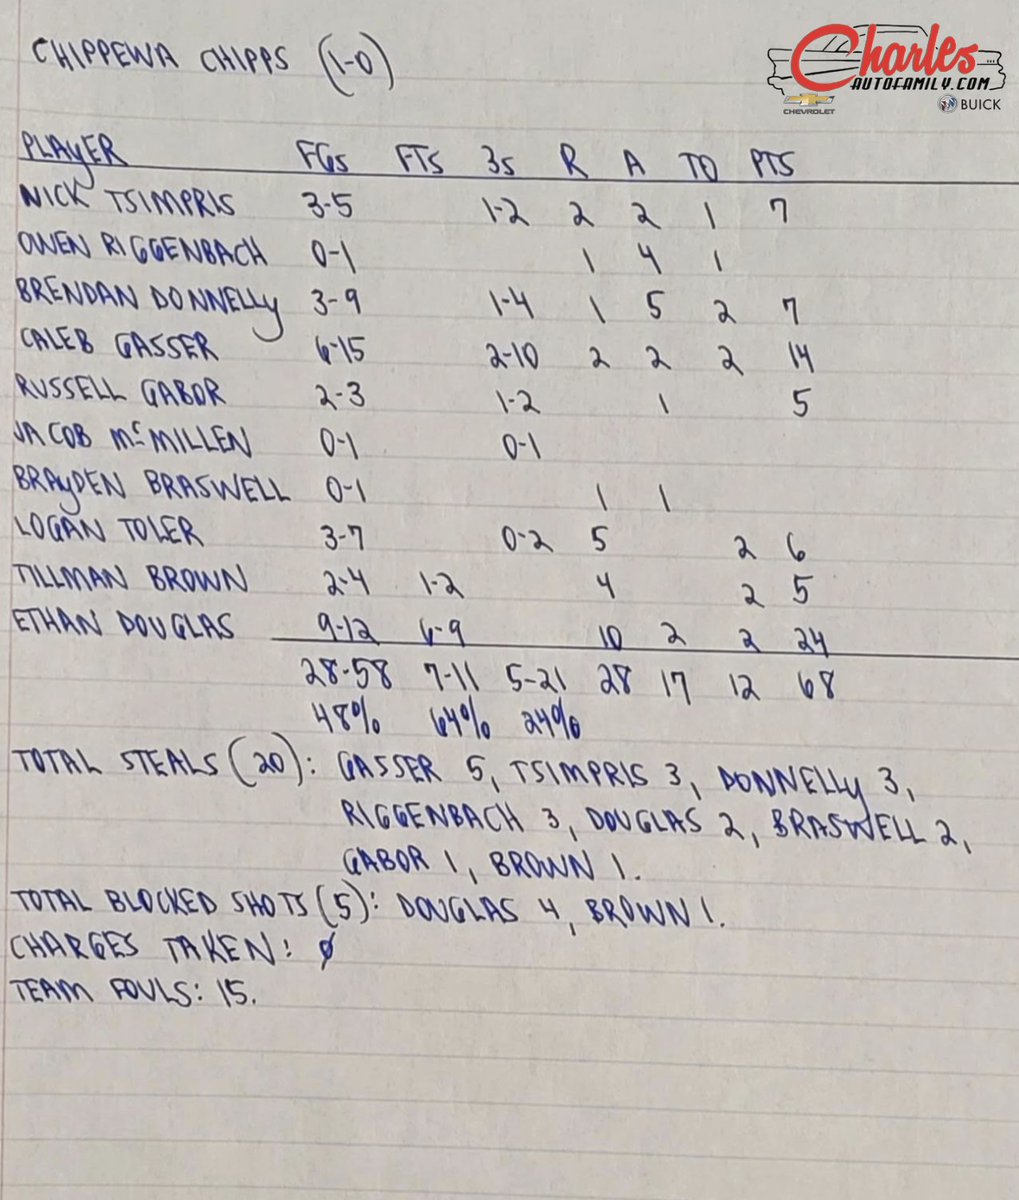 CHIPPEWA CHIPPS (1-0)
Charles
AUTOFAMILY.COM
CHEVROLET
BUICK
PLAYER FGs FTs 3s R A TO PTS
NICK TSIMPRIS 3-5 1-2 2 2 1 7
OWEN RIGGENBACH 0-1 1 4 1
BRENDAN DONNELLY 3-9 1-4 1 5 2 7
CALEB GASSER 6-15 2-10 2 2 2 14
RUSSELL GABOR 2-3 1-2 1 5
JACOB McMILLEN 0-1 0-1
BRAYDEN BRASWELL 0-1 1 1
LOGAN TOLER 3-7 0-2 5 2 6
TILLMAN BROWN 2-4 1-2 4 2 5
ETHAN DOUGLAS 9-12 6-9 10 2 2 24
28-58 7-11 5-21 28 17 12 68
48% 64% 24%
TOTAL STEALS (20): GASSER 5, TSIMPRIS 3, DONNELLY 3,
RIGGENBACH 3, DOUGLAS 2, BRASWELL 2,
GABOR 1, BROWN 1.
TOTAL BLOCKED SHOTS (5): DOUGLAS 4, BROWN 1.
CHARGES TAKEN: 0
TEAM FOULS: 15.